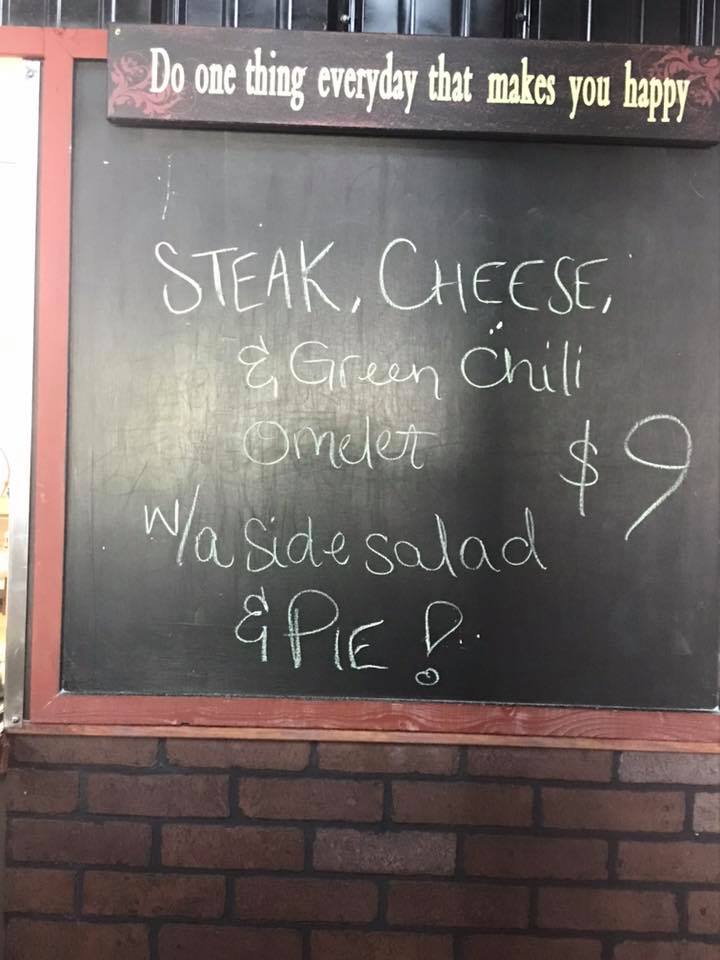 Do one thing everyday that makes you happy
STEAK, CHEESE,
& Green Chili
Omelet $9
w/a side salad
& PIE!